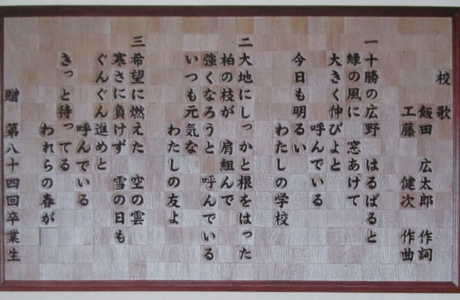 校歌
飯田 広太郎 作詞
工藤 健次 作曲
一 十勝の広野 はるばると
緑の風に 窓あけて
大きく伸びよと
呼んでいる
今日も明るい
わたしの学校
二 大地にしっかと根をはった
柏の枝が 肩組んで
強くなろうと 呼んでいる
いつも元気な
わたしの友よ
三 希望に燃えた 空の雲
寒さに負けず 雪の日も
ぐんぐん進めと
呼んでいる
きっと待ってる
われらの春が
贈 第八十四回卒業生